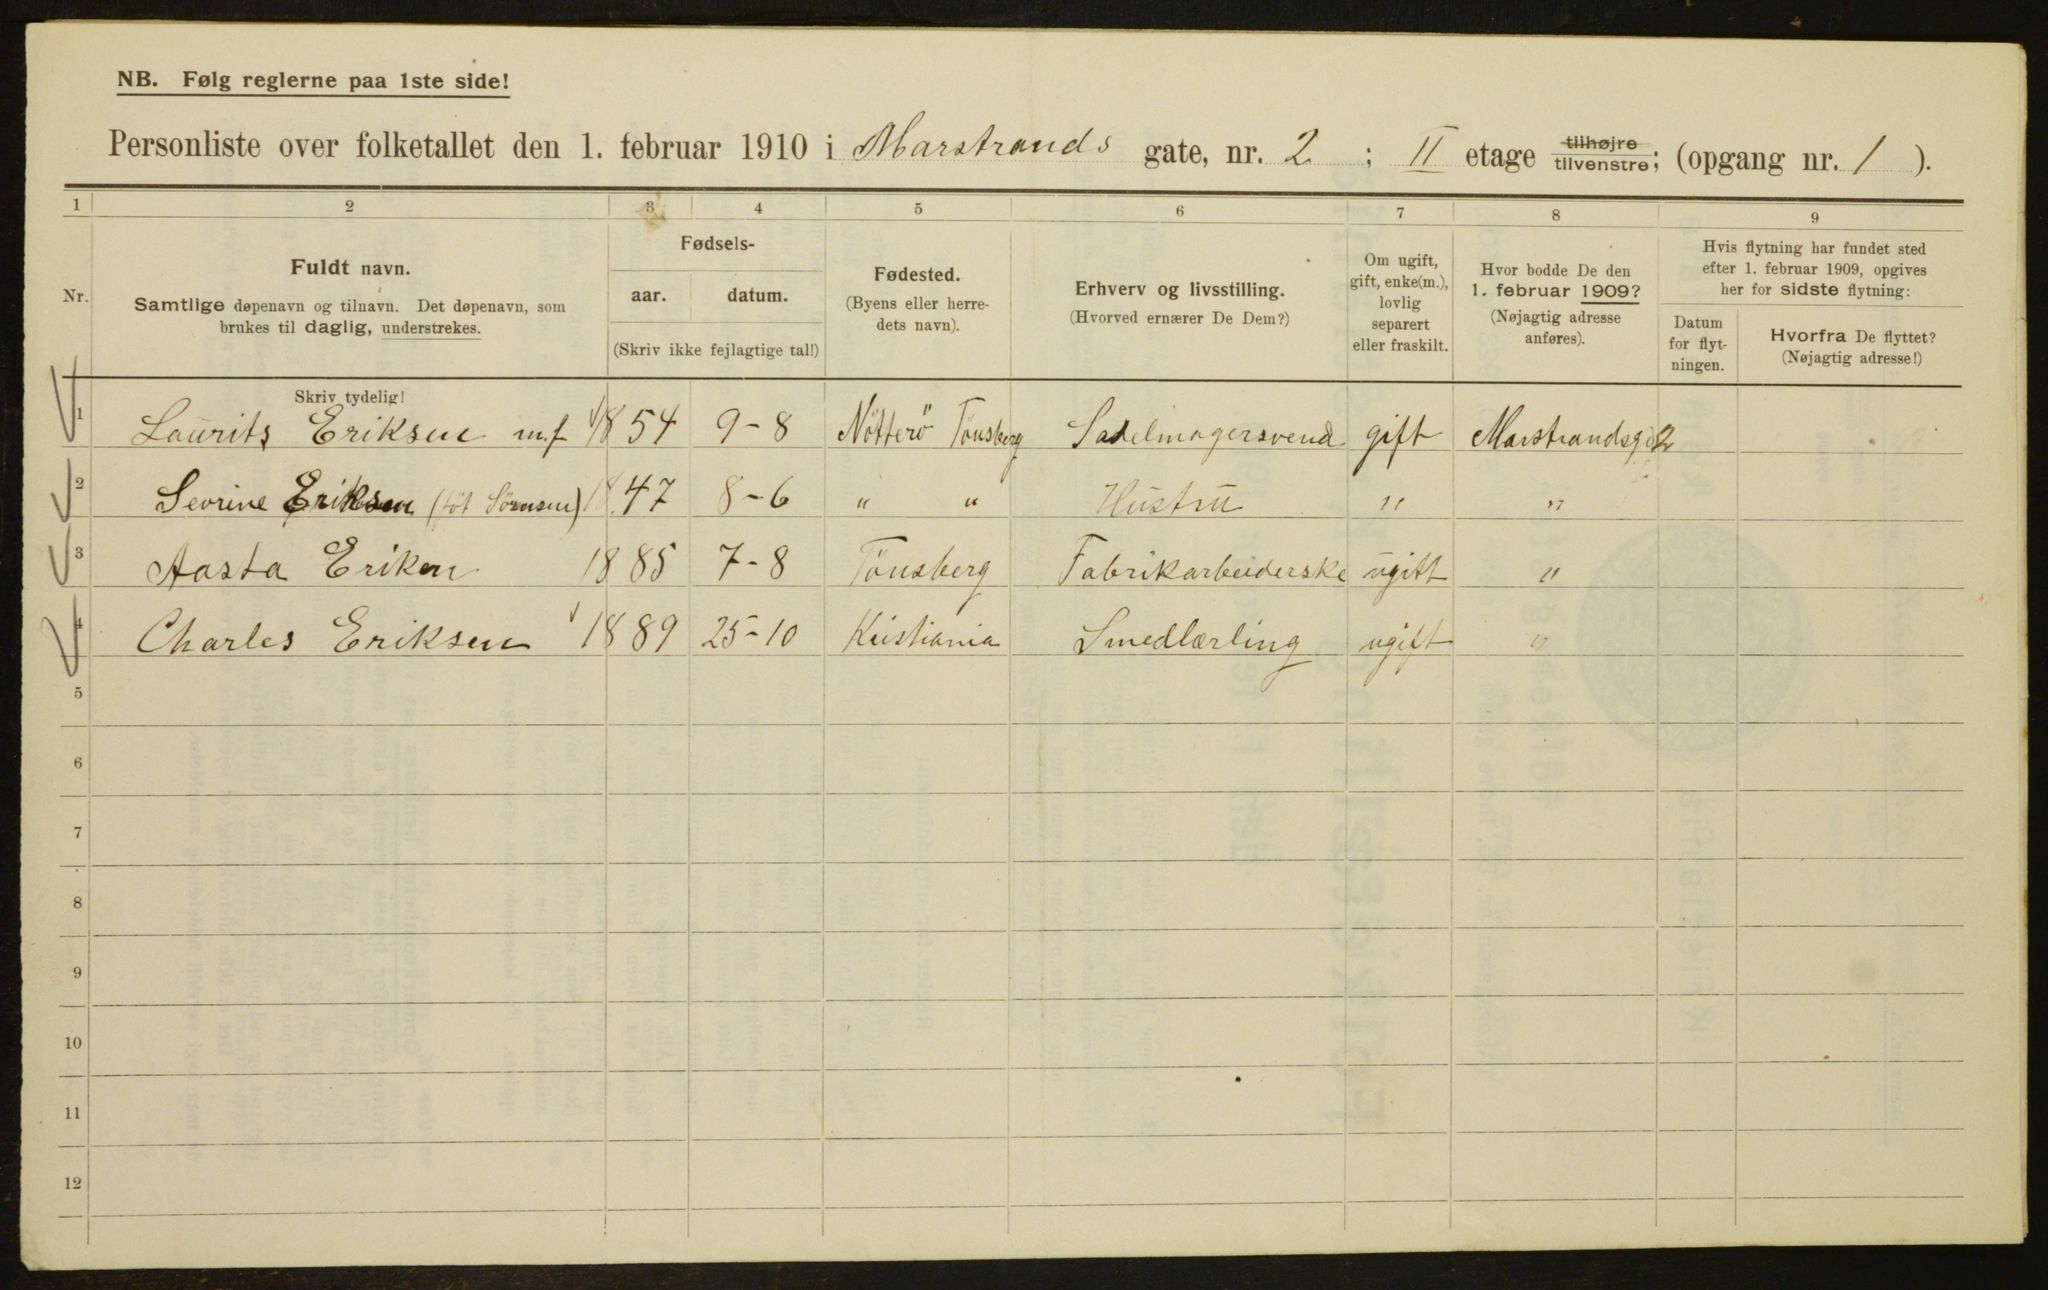 NB. Følg reglerne paa 1ste side!
Personliste over folketallet den 1. februar 1910 i Marstrands gate, nr. 2 ; II etage tilhøjre tilvenstre; (opgang nr. 1 ).
1 2 3 4 5 6 7 8 9
Nr.
Fuldt navn.
Samtlige døpenavn og tilnavn. Det døpenavn, som
brukes til daglig, understrekes.
Skriv tydelig!
Fødsels-
aar. datum.
(Skriv ikke fejlagtige tal!)
Fødested.
(Byens eller herre-
dets navn).
Erhverv og livsstilling.
(Hvorved ernærer De Dem?)
Om ugift,
gift, enke(m.),
lovlig
separert
eller fraskilt.
Hvor bodde De den
1. februar 1909?
(Nøjagtig adresse
anføres).
Hvis flytning har fundet sted
efter 1. februar 1909, opgives
her for sidste flytning:
Datum
for flyt-
ningen.
Hvorfra De flyttet?
(Nøjagtig adresse!)
1 Laurits Eriksen m.f 1854 9-8 Nötterö Tönsberg Sadelmagersvend gift Marstrandsg 2
2 Sevrine Eriksen (föt Sörensen) 1847 8-6 " " Hustru " "
3 Aasta Eriken 1885 7-8 Tönsberg Fabrikarbeiderske ugift "
4 Charles Eriksen 1889 25-10 Kristiania Smedlærling ugift "
5
6
7
8
9
10
11
12